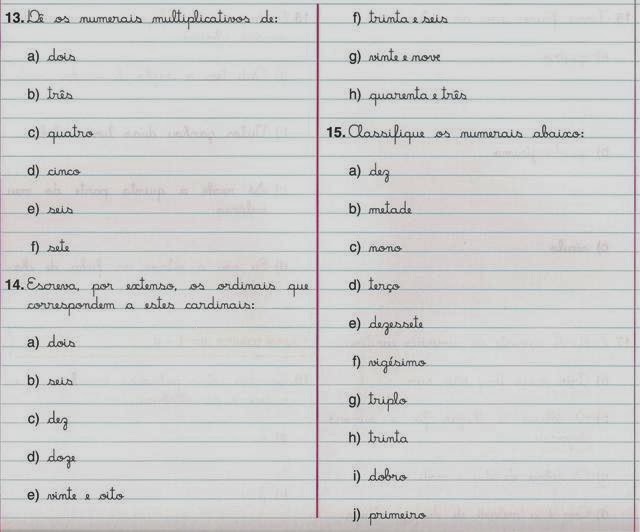 13. Dê os numerais multiplicativos de:
a) dois
b) três
c) quatro
d) cinco
e) seis
f) sete
14. Escreva, por extenso, os ordinais que
correspondem a estes cardinais:
a) dois
b) seis
c) dez
d) doze
e) vinte e oito
f) trinta e seis
g) vinte e nove
h) quarenta e três
15. Classifique os numerais abaixo:
a) dez
b) metade
c) nono
d) terço
e) dezessete
f) vigésimo
g) triplo
h) trinta
i) dobro
j) primeiro